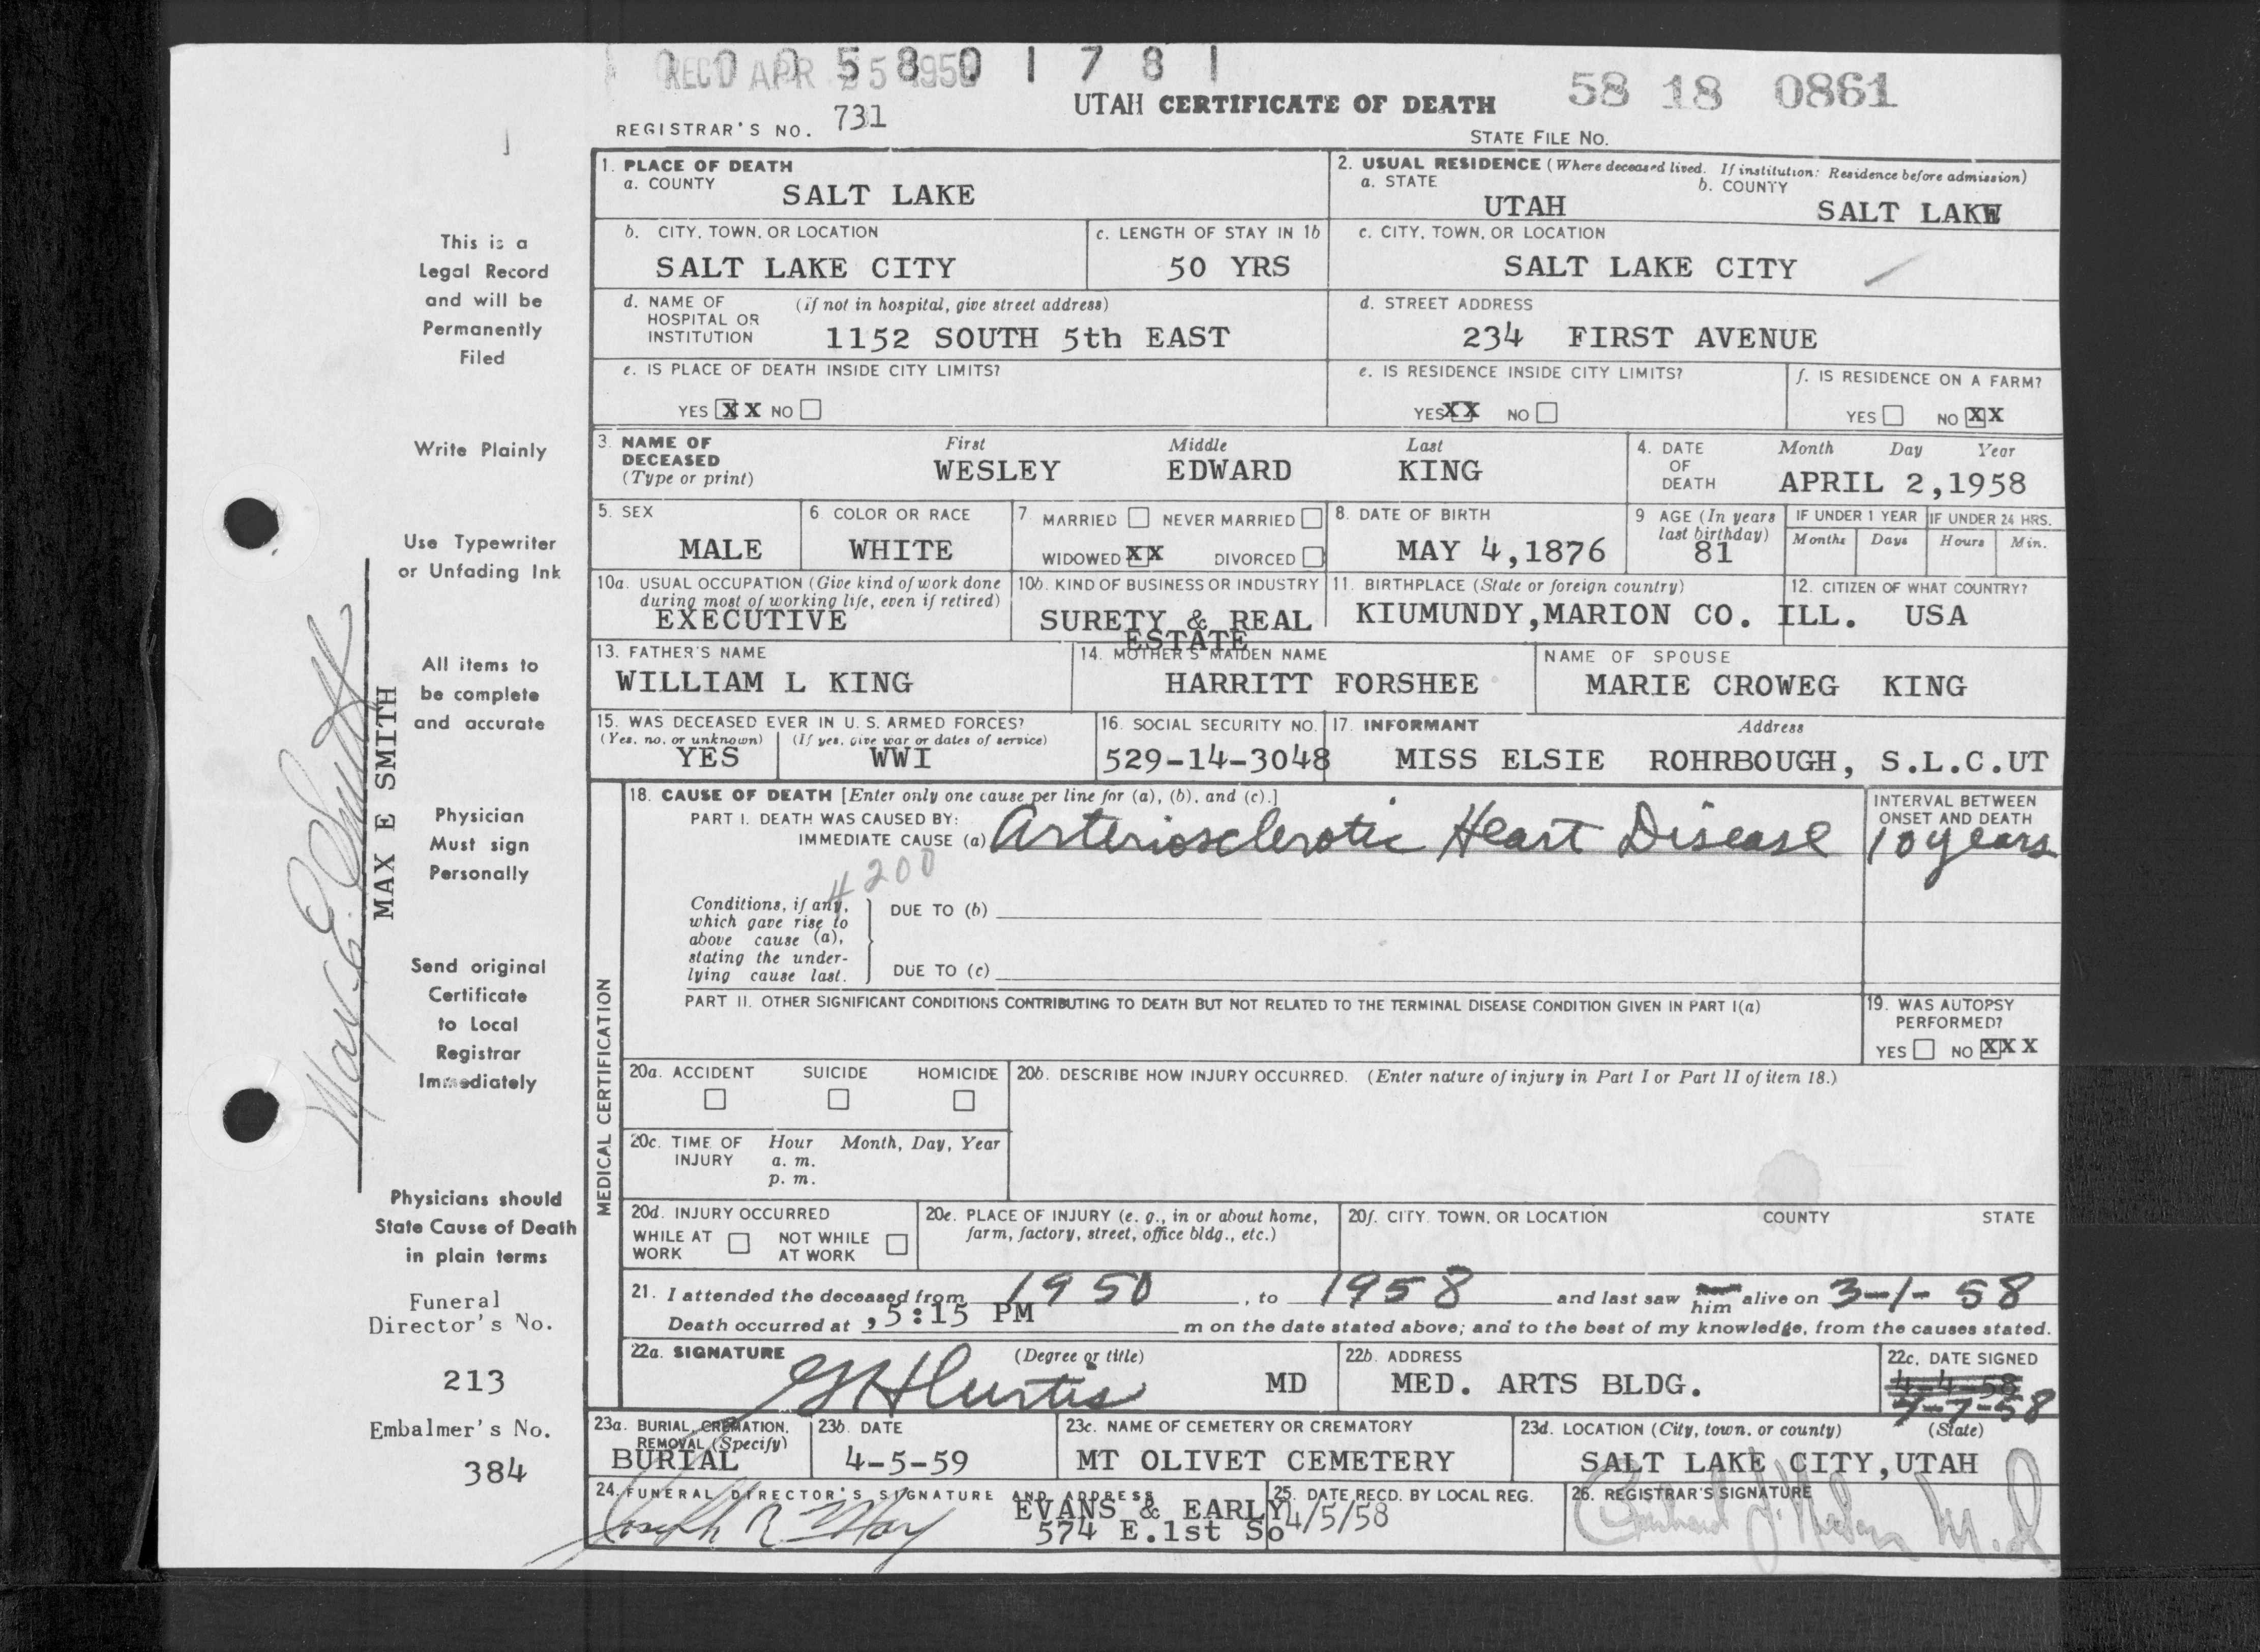 REC'D APR 25 1958
0 0 5 8 0 1 7 8 1
58 18 0861
UTAH CERTIFICATE OF DEATH
REGISTRAR'S NO. 731
STATE FILE NO.
1. PLACE OF DEATH
a. COUNTY SALT LAKE
2. USUAL RESIDENCE (Where deceased lived. If institution: Residence before admission)
a. STATE UTAH b. COUNTY SALT LAKE
b. CITY, TOWN, OR LOCATION SALT LAKE CITY
c. LENGTH OF STAY IN 1b 50 YRS
c. CITY, TOWN, OR LOCATION SALT LAKE CITY
d. NAME OF HOSPITAL OR INSTITUTION (if not in hospital, give street address)
1152 SOUTH 5th EAST
d. STREET ADDRESS
234 FIRST AVENUE
e. IS PLACE OF DEATH INSIDE CITY LIMITS?
YES XX NO
e. IS RESIDENCE INSIDE CITY LIMITS?
YES XX NO
f. IS RESIDENCE ON A FARM?
YES NO XX
3. NAME OF DECEASED (Type or print)
First Middle Last
WESLEY EDWARD KING
4. DATE OF DEATH Month Day Year
APRIL 2,1958
5. SEX MALE
6. COLOR OR RACE WHITE
7. MARRIED NEVER MARRIED
WIDOWED XX DIVORCED
8. DATE OF BIRTH MAY 4,1876
9 AGE (In years last birthday) 81
IF UNDER 1 YEAR IF UNDER 24 HRS.
Months Days Hours Min.
10a. USUAL OCCUPATION (Give kind of work done during most of working life, even if retired)
EXECUTIVE
10b. KIND OF BUSINESS OR INDUSTRY
SURETY & REAL ESTATE
11. BIRTHPLACE (State or foreign country)
KIUMUNDY,MARION CO. ILL.
12. CITIZEN OF WHAT COUNTRY?
USA
13. FATHER'S NAME
WILLIAM L KING
14. MOTHER'S MAIDEN NAME
HARRITT FORSHEE
NAME OF SPOUSE
MARIE CROWEG KING
15. WAS DECEASED EVER IN U. S. ARMED FORCES?
(Yes, no, or unknown) (If yes, give war or dates of service)
YES WWI
16. SOCIAL SECURITY NO.
529-14-3048
17. INFORMANT Address
MISS ELSIE ROHRBOUGH, S.L.C.UT
MEDICAL CERTIFICATION
18. CAUSE OF DEATH [Enter only one cause per line for (a), (b), and (c).]
PART I. DEATH WAS CAUSED BY:
IMMEDIATE CAUSE (a) Arteriosclerotic Heart Disease
INTERVAL BETWEEN ONSET AND DEATH
10 years
4200
Conditions, if any, which gave rise to above cause (a), stating the underlying cause last.
DUE TO (b)
DUE TO (c)
PART II. OTHER SIGNIFICANT CONDITIONS CONTRIBUTING TO DEATH BUT NOT RELATED TO THE TERMINAL DISEASE CONDITION GIVEN IN PART I(a)
19. WAS AUTOPSY PERFORMED?
YES NO XXX
20a. ACCIDENT SUICIDE HOMICIDE
20b. DESCRIBE HOW INJURY OCCURRED. (Enter nature of injury in Part I or Part II of item 18.)
20c. TIME OF INJURY Hour Month, Day, Year
a. m.
p. m.
20d. INJURY OCCURRED
WHILE AT WORK NOT WHILE AT WORK
20e. PLACE OF INJURY (e. g., in or about home, farm, factory, street, office bldg., etc.)
20f. CITY, TOWN, OR LOCATION COUNTY STATE
21. I attended the deceased from 1950, to 1958 and last saw him alive on 3-1-58
Death occurred at ,5:15 PM m on the date stated above; and to the best of my knowledge, from the causes stated.
22a. SIGNATURE (Degree or title)
G H Curtis MD
22b. ADDRESS
MED. ARTS BLDG.
22c. DATE SIGNED
4-4-58
4-7-58
23a. BURIAL, CREMATION, REMOVAL (Specify)
BURIAL
23b. DATE
4-5-59
23c. NAME OF CEMETERY OR CREMATORY
MT OLIVET CEMETERY
23d. LOCATION (City, town, or county) (State)
SALT LAKE CITY,UTAH
24. FUNERAL DIRECTOR'S SIGNATURE AND ADDRESS
Joseph R May
EVANS & EARLY
574 E.1st So
25. DATE RECD. BY LOCAL REG.
4/5/58
26. REGISTRAR'S SIGNATURE
M.D
This is a
Legal Record
and will be
Permanently
Filed
Write Plainly
Use Typewriter
or Unfading Ink
All items to
be complete
and accurate
Physician
Must sign
Personally
Send original
Certificate
to Local
Registrar
Immediately
Physicians should
State Cause of Death
in plain terms
Funeral
Director's No.
213
Embalmer's No.
384
Max E. Smith
MAX E SMITH